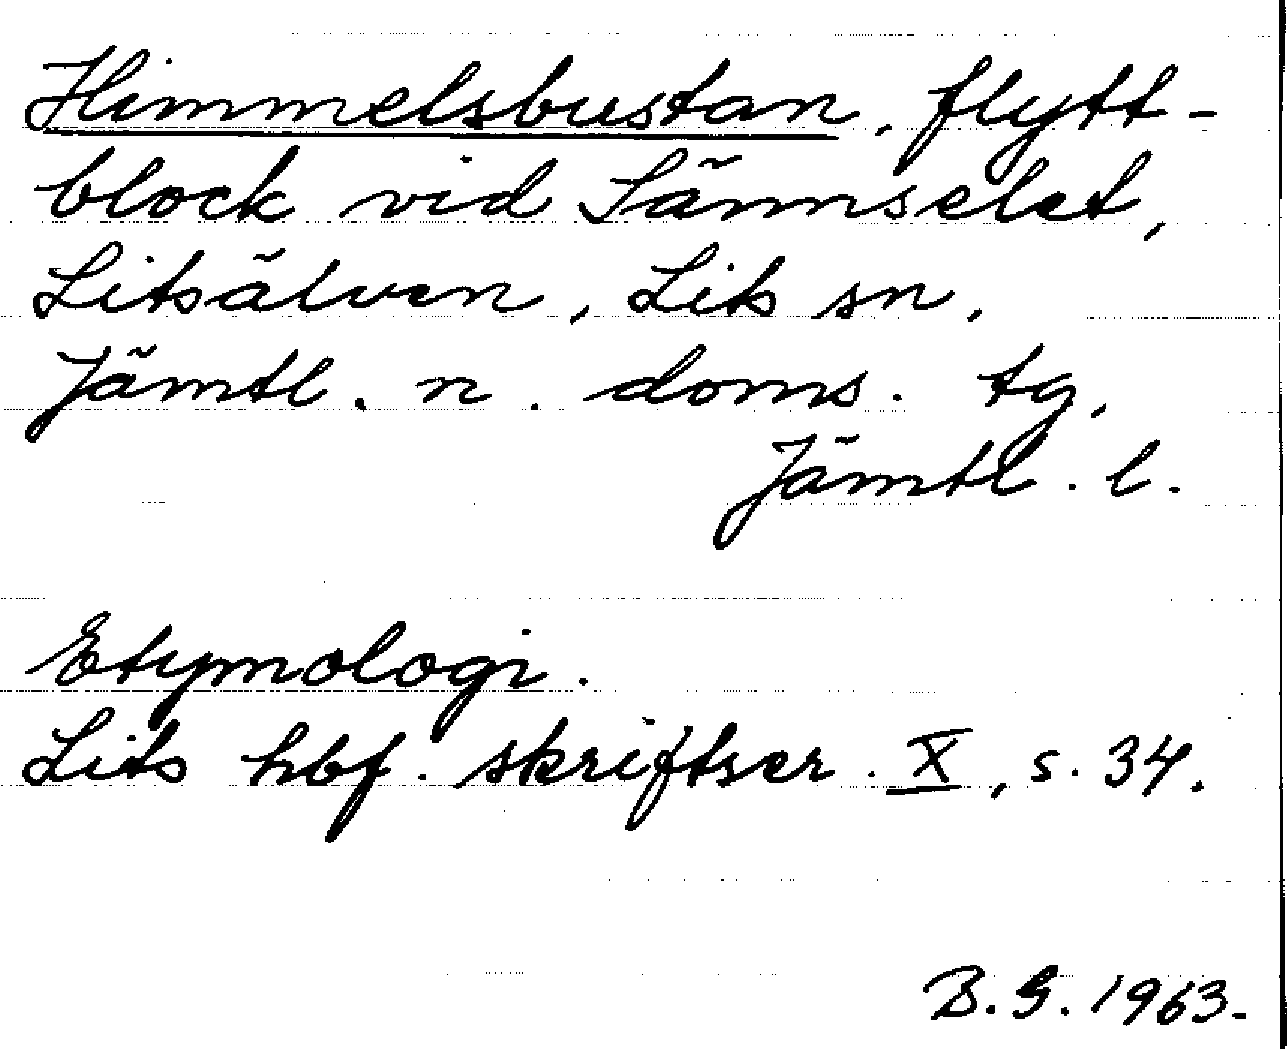 Himmelsbustan, flytt-
block vid Sännselet,
Litsälven, Lits sn,
Jämtl. n. doms. tg,
Jämtl. l.
Etymologi.
Lits hbf. skriftser. X, s. 34.
B.G. 1963.